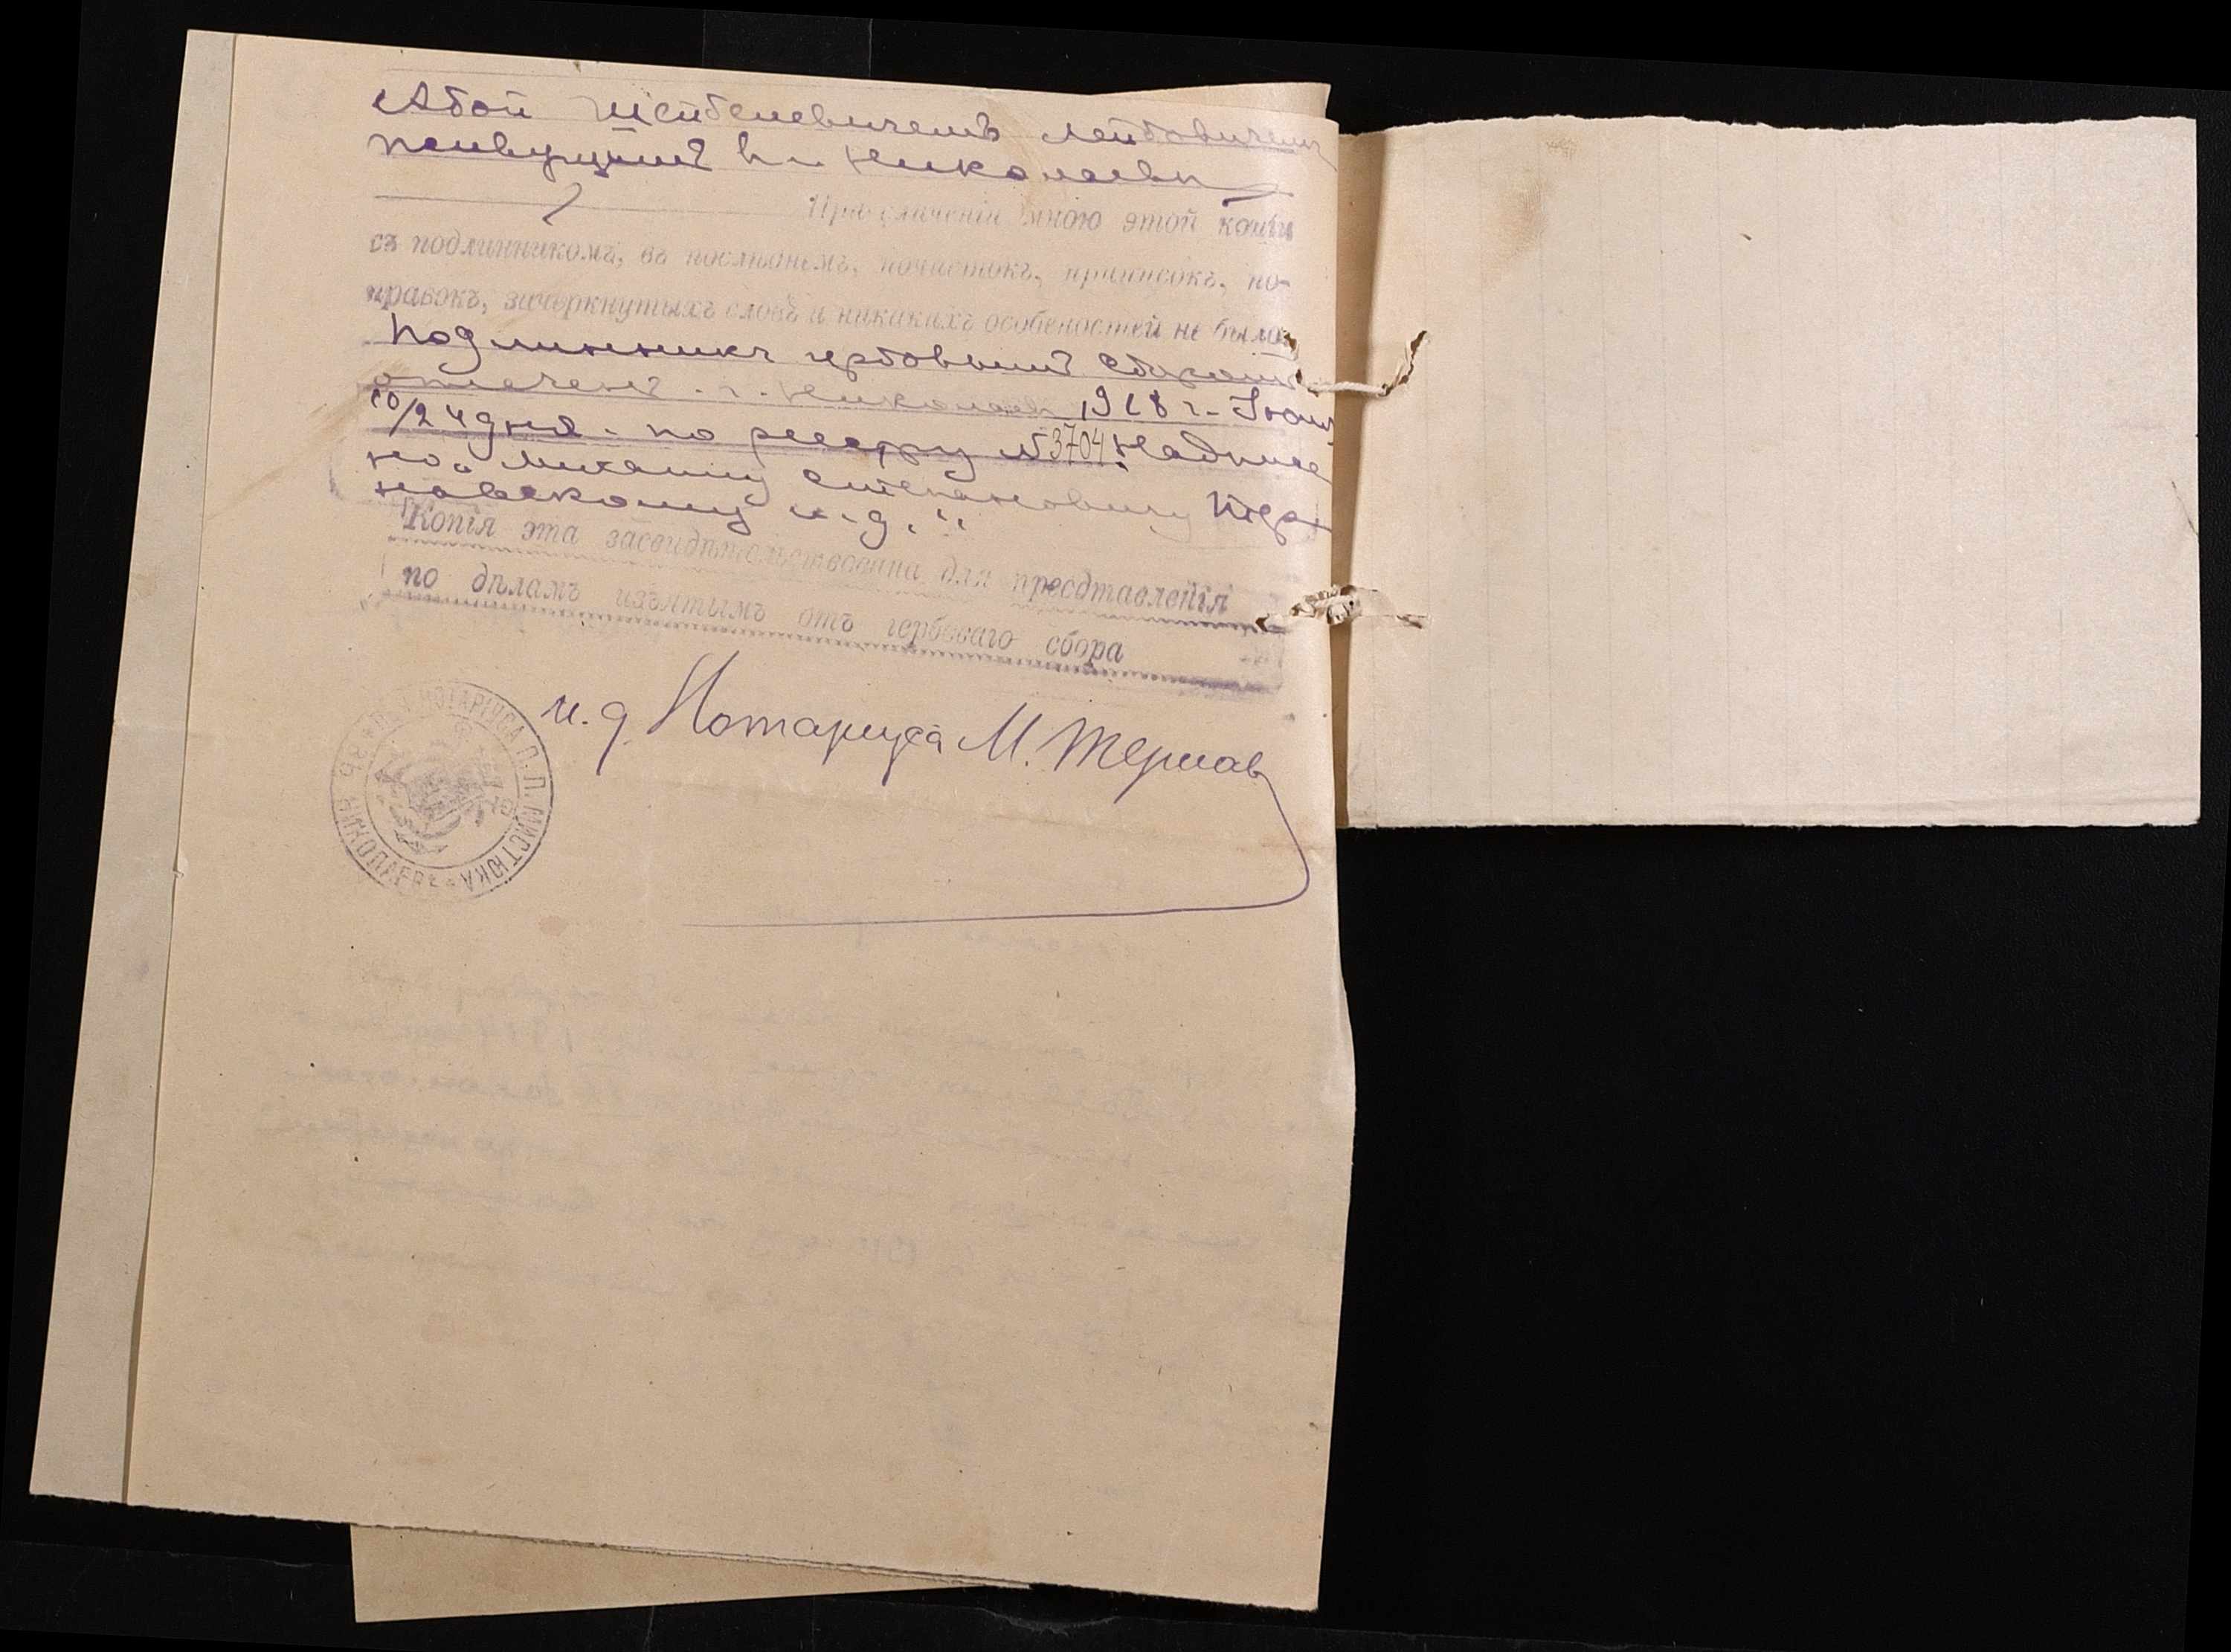 Абой Шейбелевичемъ Лейбовичемъ
живущимъ въ г. Николаевѣ
При сличеніи мною этой копіи
съ подлинникомъ, въ послѣднемъ, почистокъ, приписокъ, по-
правокъ, зачеркнутыхъ словъ и никакихъ особеностей не было.
Подлинникъ гербовымъ сборомъ
оплаченъ. г. Николаевъ 1918 г. Іюля
10/24 дня. по реестру № 3704. Надписа
но: Михаилу Степановичу Тер
навскому и. д."
Копія эта засвидѣтельствована для пресдтавленія
по дѣламъ изъятымъ отъ гербоваго сбора
и. д. Нотаріуса М. Тернав
НОТАРІУСА П. П. МИСТЮКА
НИКОЛАЕВЪ